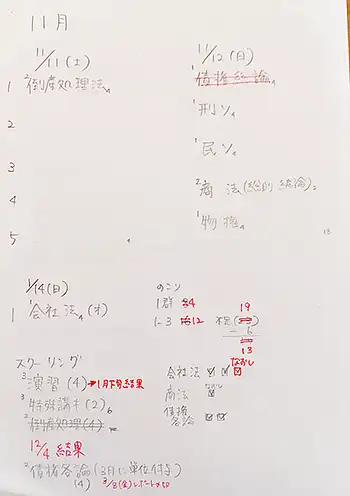 11月
11/11(土)
1 ²倒産処理法4
2
3
4
5
4
11/12(日)
¹債権総論4
¹刑ソ4
¹民ソ4
²商法(総則 総論)2
¹物権4
13
1/14(日)
1 ¹会社法4(オ)
のこり
1群 4
1-3 12
19
不足
- 6
13
なおし
会社法 ☑ ☑ ☑
商法
債権各論 ☑ ☑
スクーリング
³演習(4)→1月下旬結果
³特殊講キ(2)6
²倒産処理(4)
12/4 結果
²債権各論(3月に単位付き)
(4) 3/8(金)レポート〆切